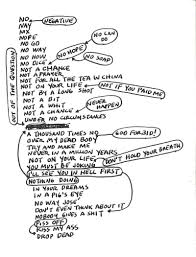 NO
NAY
NIX
NOPE
NO GO
NO WAY
NO HOW
NO DICE
NOT A CHANCE
NOT A PRAYER
NOT FOR ALL THE TEA IN CHINA
NOT ON YOUR LIFE
NOT BY A LONG SHOT
NOT A BIT
NOT A WHIT
NOT A CHANCE
UNDER NO CIRCUMSTANCES
NEGATIVE
NO CAN DO
NO HOPE
NO SOAP
NOT IF YOU PAID ME
NEVER HAPPEN
OUT OF THE QUESTION
A THOUSAND TIMES NO
GOD FORBID!
OVER MY DEAD BODY
TRY AND MAKE ME
NEVER IN A MILLION YEARS
NOT ON YOUR LIFE
YOU MUST BE JOKING
DON'T HOLD YOUR BREATH
I'LL SEE YOU IN HELL FIRST
NOTHING DOING
IN YOUR DREAMS
IN A PIG'S EYE
NO WAY JOSE
DON'T EVEN THINK ABOUT IT
NOBODY GIVES A SHIT
PISS OFF
KISS MY ASS
DROP DEAD